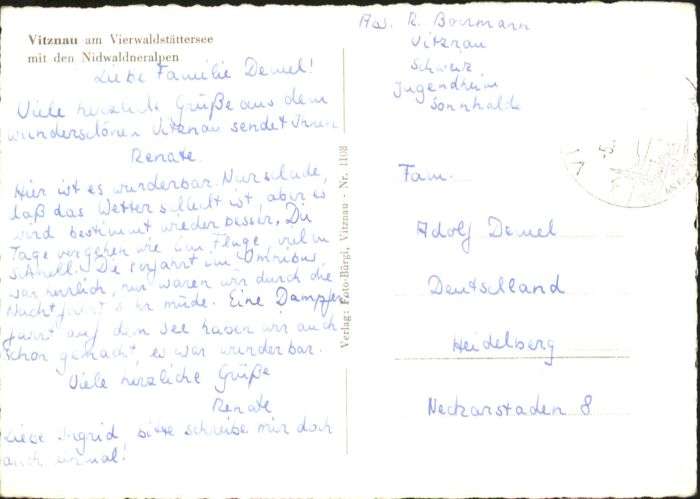 Vitznau am Vierwaldstättersee
mit den Nidwaldneralpen
Liebe Familie Demel!
Viele herzliche Grüße aus dem
wunderschönen Vitznau sendet Ihnen
Renate.
Hier ist es wunderbar. Nur schade,
daß das Wetter schlecht ist, aber es
wird bestimmt wieder besser. Die
Tage vergehen wie im Fluge, viel zu
schnell. Die Herfahrt im Omnibus
war herrlich, nur waren wir durch die
Nachtfahrt sehr müde. Eine Dampfer
fahrt auf dem See haben wir auch
schon gemacht, es war wunderbar.
Viele herzliche Grüße
Renate
Liebe Ingrid, bitte schreibe mir doch
auch einmal!
Verlag: Foto-Bürgi, Vitznau - Nr. 1108
Abs. R. Bormann
Vitznau
Schweiz
Jugendheim
Sonnhalde
Fam.
Adolf Demel
Deutschland
Heidelberg
Neckarstaden 8